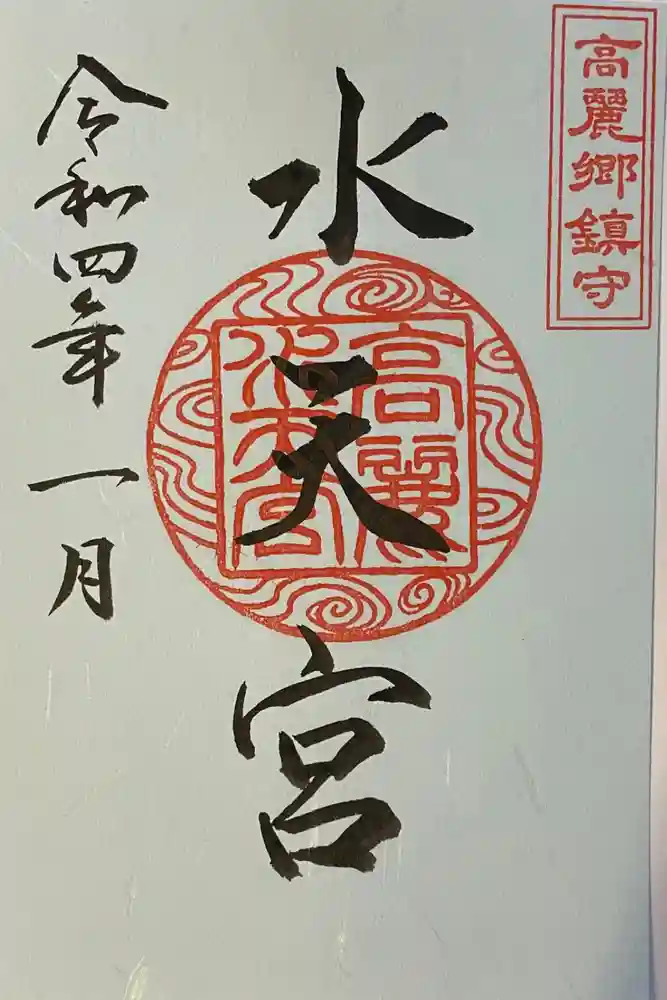 高麗郷鎮守
水天宮
高麗
水天宮
令和四年一月